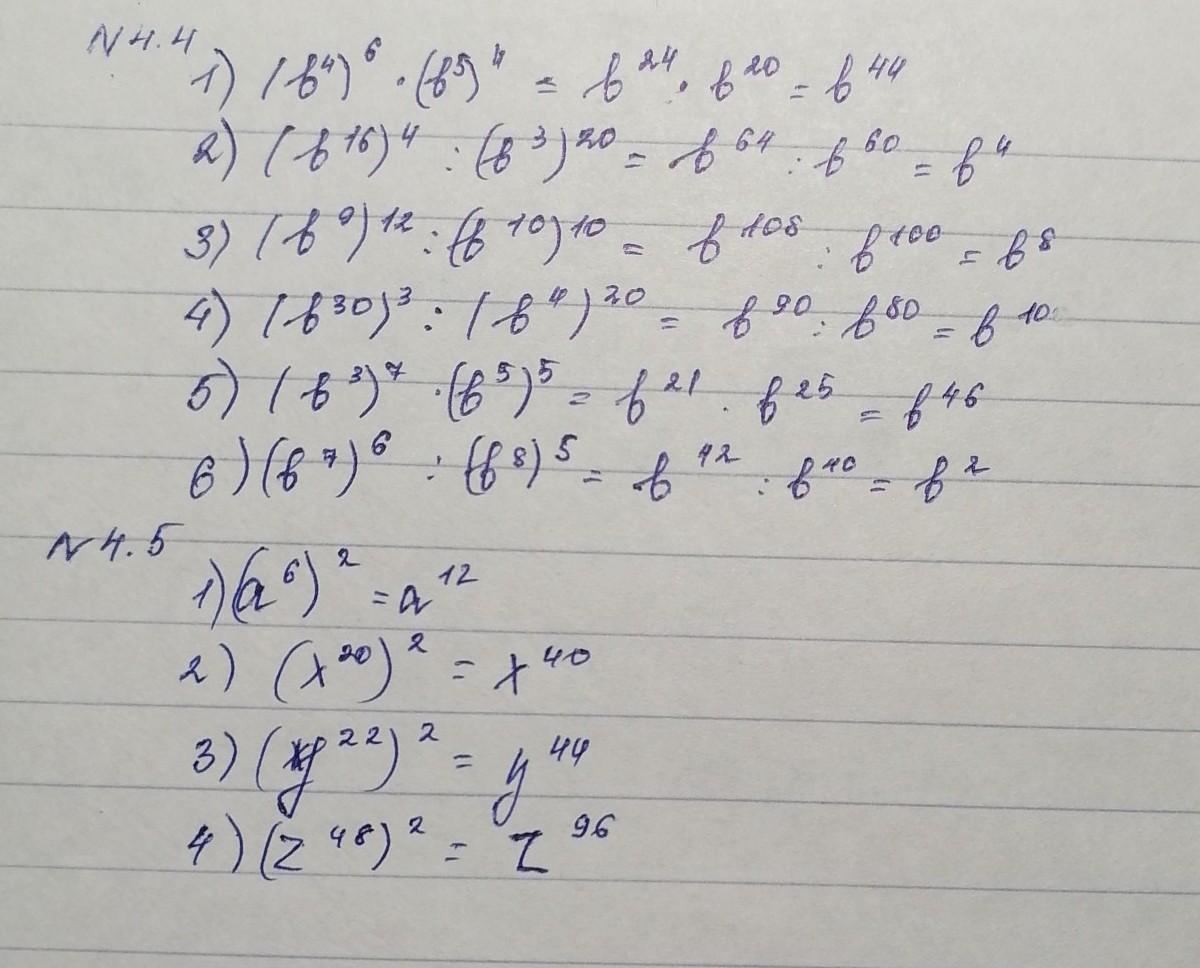 N 4.4
1) (b⁴)⁶ · (b⁵)⁴ = b²⁴ · b²⁰ = b⁴⁴
2) (b¹⁶)⁴ : (b³)²⁰ = b⁶⁴ : b⁶⁰ = b⁴
3) (b⁹)¹² : (b¹⁰)¹⁰ = b¹⁰⁸ : b¹⁰⁰ = b⁸
4) (b³⁰)³ : (b⁴)²⁰ = b⁹⁰ : b⁸⁰ = b¹⁰
5) (b³)⁷ · (b⁵)⁵ = b²¹ · b²⁵ = b⁴⁶
6) (b⁷)⁶ : (b⁸)⁵ = b⁴² : b⁴⁰ = b²
N 4.5
1) (a⁶)² = a¹²
2) (x²⁰)² = x⁴⁰
3) (y²²)² = y⁴⁴
4) (z⁴⁸)² = z⁹⁶